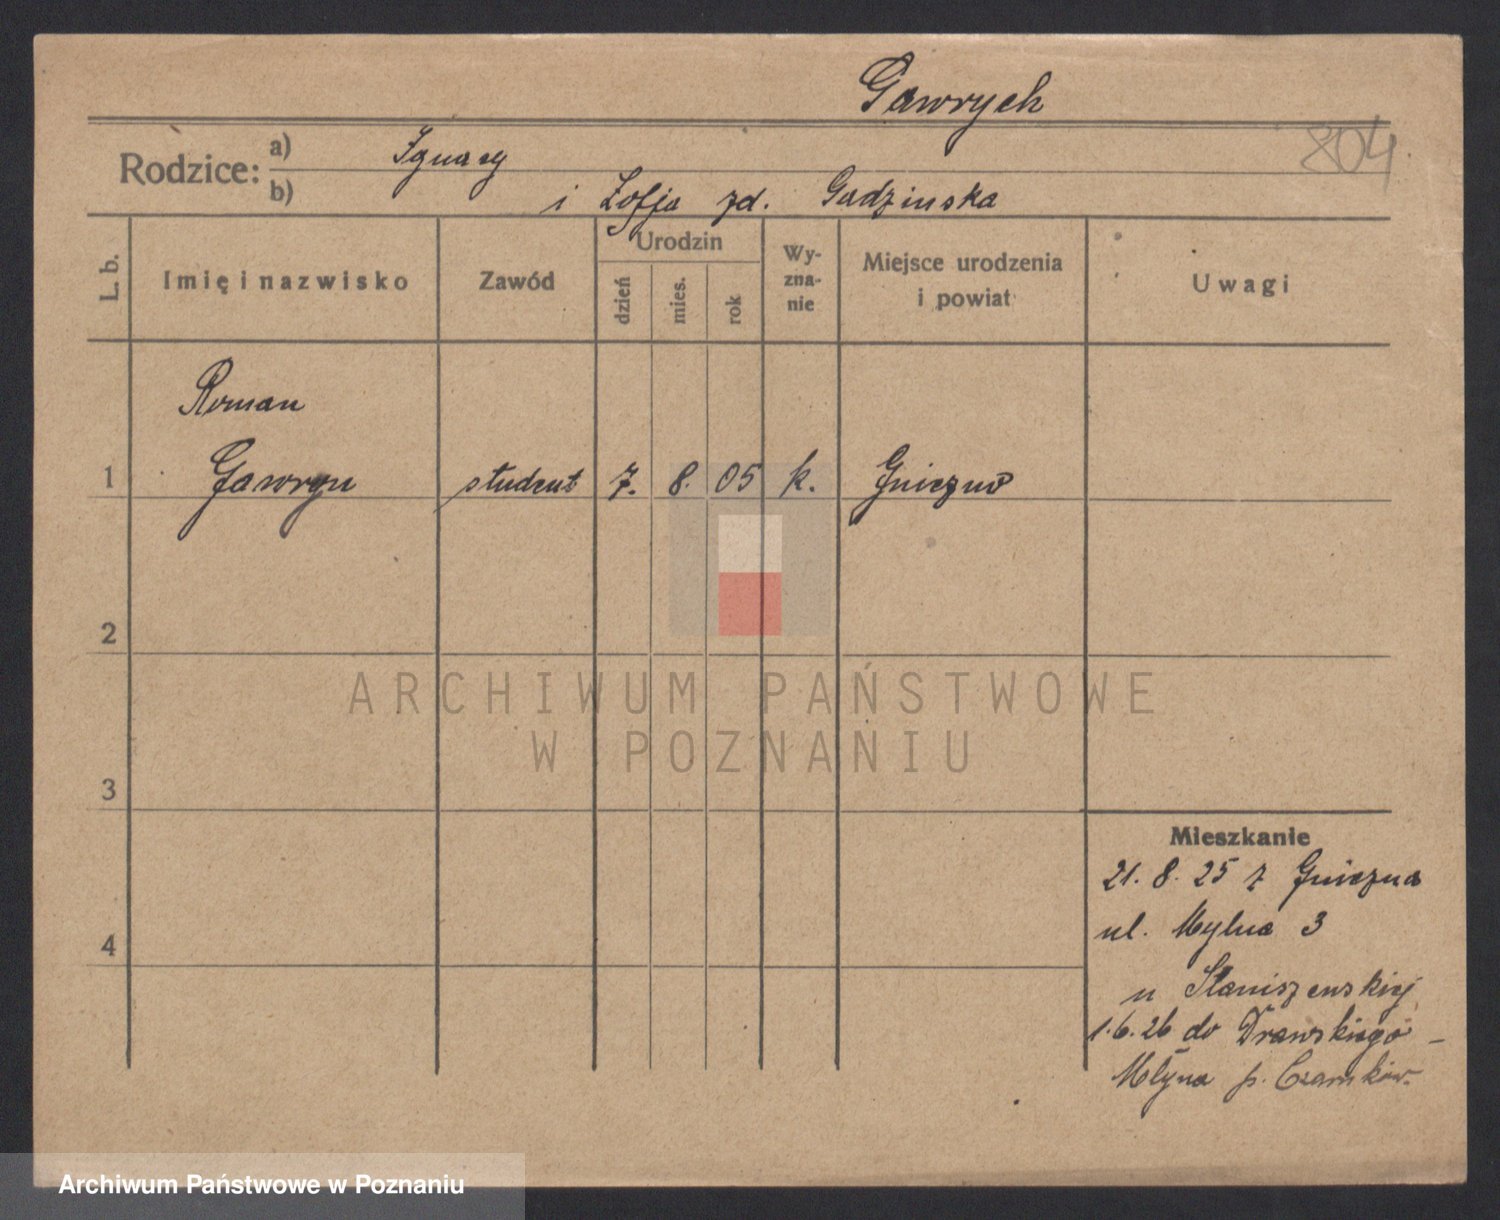 Gawrych
804
Rodzice:
a) Ignacy
b) i Zofja zd. Gadzinska
L. b.
Imię i nazwisko
Zawód
Urodzin
dzień
mies.
rok
Wy-
zna-
nie
Miejsce urodzenia
i powiat
Uwagi
Roman
1 Gawryn student 7. 8. 05 k. Gniezno
2
ARCHIWUM PAŃSTWOWE
W POZNANIU
3
4
Mieszkanie
21. 8. 25 z Gniezna
ul. Mylna 3
u Staniszewskiej
1.6.26 do Drawskiego -
Młyna p. Czarnków.
Archiwum Państwowe w Poznaniu